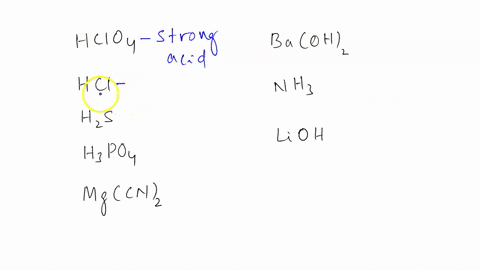 HClO4 - strong acid
HCl -
H2S
H3PO4
Mg(CN)2
Ba(OH)2
NH3
LiOH